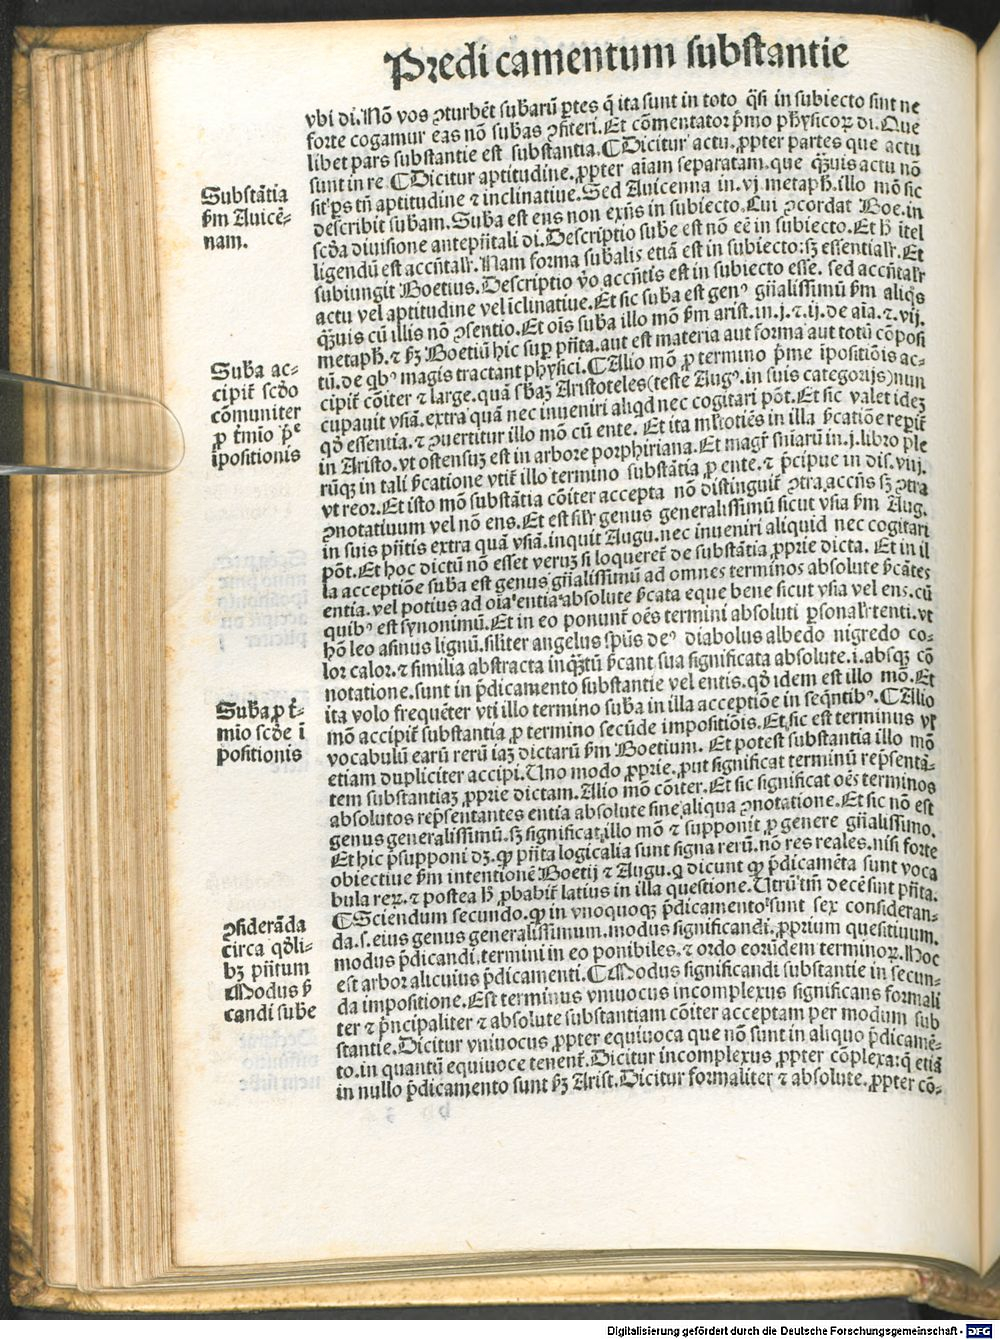 Predicamentum substantie
vbi di. Nõ vos ꝯturbẽt subarũ ꝑtes q̃ ita sunt in toto q̃si in subiecto sint ne
forte cogamur eas nõ subas ꝯfiteri. Et cõmentator p̃mo phỹsicoꝝ di. Que
libet pars substantie est substantia. ⸿Dicitur actu. ꝓpter partes que actu
sunt in re ⸿Dicitur aptitudine. ꝓpter aĩam separatam. que q̃uis actu nõ
sit ꝑs tñ aptitudine ⁊ inclinatiue. Sed Auicenna in. vj metaph̃. illo mõ sic
describit subam. Suba est ens non exñs in subiecto. Cui ꝯcordat Boe. in
scd̃a diuisione antepñitali di. Descriptio sube est nõ eẽ in subiecto. Et h̃ ĩtel
ligendũ est accñtalr̃. Nam forma subalis etiã est in subiecto: sꝫ essentialr̃. Et
subiungit Boetius. Descriptio ṽo accñtis est in subiecto esse. sed accñtalr̃
actu vel aptitudine vel ĩclinatiue. Et sic suba est genꝰ gñalissimũ s̃m aliq̃s
q̃uis cũ illis nõ ꝯsentio. Et oĩs suba illo mõ s̃m arist. in. j. ⁊. ij. de aĩa. ⁊. vij.
metaph̃. ⁊ s̃ꝫ Boetiũ hic suꝑ pñita. aut est materia aut forma aut totũ cõposi
tũ. de qbꝰ magis tractant phỹsici. ⸿Alio mõ ꝓ termino p̃me ĩpositiõis ac-
cipit̃ cõiter ⁊ large. quã s̃baꝫ Aristoteles (teste Augꝰ. in suis categorijs) nun
cupauit vsiã. extra quã nec inueniri aliqd nec cogitari põt. Et sic valet ideꝫ
qd̃ essentia. ⁊ ꝯuertitur illo mõ cũ ente. Et ita ml̃totiẽs in illa p̃catiõe reperit̃
in Aristo. vt ostensuꝫ est in arbore porphiriana. Et magr̃ sniarũ in. j. libro ple
rũqꝫ in tali p̃catione vtit̃ illo termino substãtia ꝓ ente. ⁊ p̃cipue in dis. viij.
vt reor. Et isto mõ substãtia cõiter accepta nõ distinguit̃ ꝯtra accñs sꝫ ꝯtra
ꝯnotatiuum vel nõ ens. Et est silr̃ genus generalissimũ sicut vsia s̃m Aug.
in suis pñitis extra quã vsiã. inquit Augu. nec inueniri aliquid nec cogitari
põt. Et hoc dictũ nõ esset veruꝫ si loqueret̃ de substãtia ꝓprie dicta. Et in il
la acceptiõe suba est genus gñalissimũ ad omnes terminos absolute p̃cãtes
entia. vel potius ad oĩa entia absolute p̃cata eque bene sicut vsia vel ens. cũ
quibꝰ est synonimũ. Et in eo ponunt̃ oẽs termini absoluti ꝑsonalr̃ tenti. vt
hõ leo asinus lignũ. siliter angelus sp̃us deꝰ diabolus albedo nigredo co-
lor calor. ⁊ similia abstracta inq̃tũ p̃cant sua significata absolute. i. absqꝫ cõ
notatione. sunt in p̃dicamento substantie vel entis. qd̃ idem est illo mõ. Et
ita volo frequẽter vti illo termino suba in illa acceptiõe in seq̃ntibꝰ. ⸿Alio
mõ accipit̃ substantia ꝓ termino secũde impositiõis. Et sic est terminus vl̃
vocabulũ earũ rerũ iaꝫ dictarũ s̃m Boetium. Et potest substantia illo mõ
etiam dupliciter accipi. Uno modo ꝓprie. ꝓut significat terminũ rep̃senta-
tem substantiaꝫ ꝓprie dictam. Alio mõ cõiter. Et sic significat oẽs terminos
absolutos rep̃sentantes entia absolute sine aliqua ꝯnotatione. Et sic nõ est
genus generalissimũ. sꝫ significat illo mõ ⁊ supponit ꝓ genere gñalissimo.
Et hic p̃supponi dꝫ. qꝙ pñita logicalia sunt signa rerũ. nõ res reales. nisi forte
obiectiue s̃m intentionẽ Boetij ⁊ Augu. q dicunt qꝙ p̃dicamẽta sunt voca
bula reꝝ. ⁊ postea h̃ ꝓbabit̃ latius in illa questione. Utrũ tm̃ decẽ sint pñita.
⸿Sciendum secundo. qꝙ in vnoquoqꝫ p̃dicamento sunt sex consideran-
da. s. eius genus generalissimum. modus significandi. ꝓprium quesitiuum.
modus p̃dicandi. termini in eo ponibiles. ⁊ ordo eorũdem terminoꝝ. Hoc
est arbor alicuius p̃dicamenti. ⸿Modus significandi substantie in secun-
da impositione. Est terminus vniuocus incomplexus significans formali
ter ⁊ p̃ncipaliter ⁊ absolute substantiam cõiter acceptam per modum sub
stantie. Dicitur vniuocus ꝓpter equiuoca que nõ sunt in aliquo p̃dicamẽ-
to. in quantũ equiuoce tenent̃. Dicitur incomplexus ꝓpter cõplexa: q̃ etiã
in nullo p̃dicamento sunt s̃ꝫ Arist. Dicitur formaliter ⁊ absolute. ꝓpter cõ-
Substãtia
s̃m Auicẽ-
nam.
Suba ac-
cipit̃ scd̃o
cõmuniter
ꝓ t̃mĩo p̃ᵉ
ĩpositionis
Suba ꝓ t̃-
mio scd̃e ĩ
positionis
ꝯsiderãda
circa qd̃li-
bꝫ pñitum
Modus p̃
candi sube
Digitalisierung gefördert durch die Deutsche Forschungsgemeinschaft - DFG